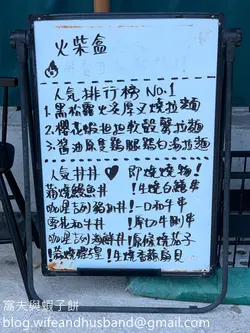 火柴盒
人気排行榜 NO.1
1.黑松露火炙厚叉燒拉麵
2.櫻花蝦担担軟殼蟹拉麵
3.醬油原隻鷄腿鷄白湯拉麵
人気丼丼♥ 即燒燒物!
蒲燒鰻魚丼 !燒白鱔串
咖喱吉列豬扒丼 !一口和牛串
雪花和牛丼 !厚切牛脷串
咖喱吉列海鮮丼 !燒茄子
!蒲燒 !燒扇貝
窩夫與蝦子餅
blog.wifeandhusband@gmail.com